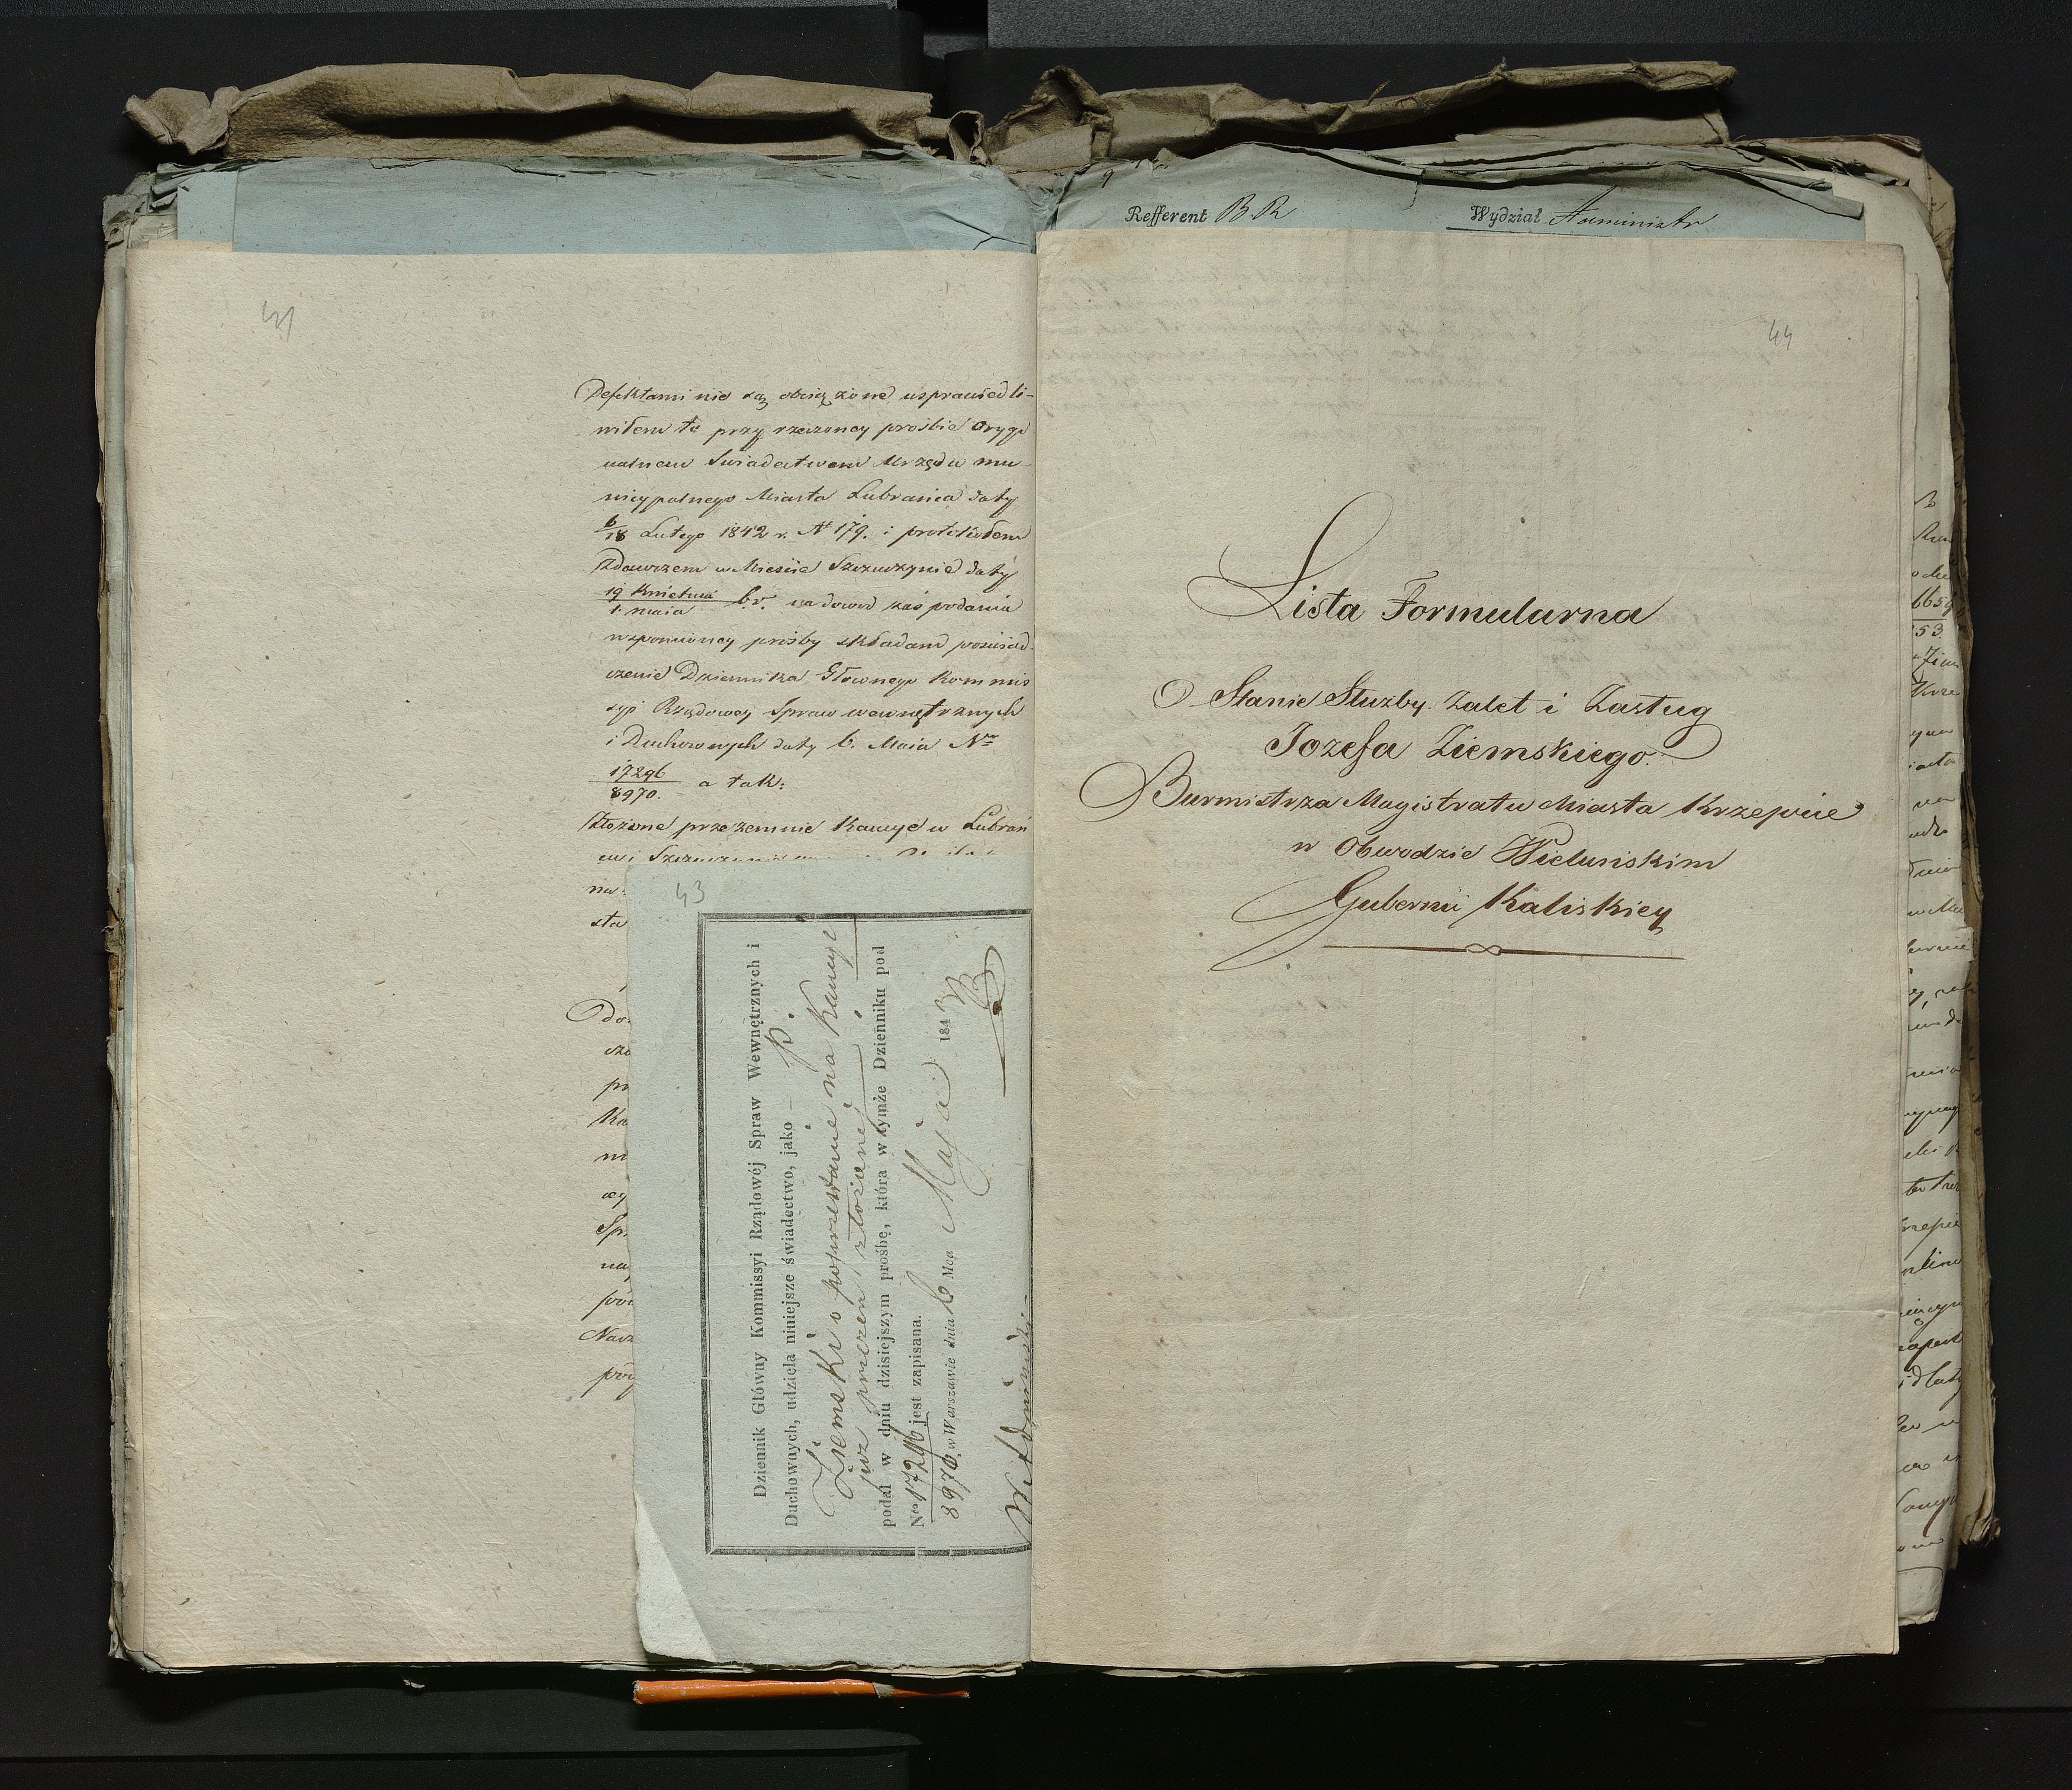 41
Defektami nie są obciążone usprawiedli-
wiłem to przy rzeczoney proźbie Orygi
nalnem Swiadectwem Urzędu mu
nicypalnego Miasta Lubrańca daty
6/18 Lutego 1842 r. Nr 179. i protokółem
Zdawczem w Mieście Szczuczynie daty
19 Kwietnia/1. maia b.r. na dowód zaś podania
wspomnioney proźby składam poświad
czenie Dziennika Głównego Kommis
syi Rządowey Spraw wewnętrznych
i Duchownych daty 6. Maia Nro
17296/8970. a tak:
Złożone przezemnie Kaucye w Lubrań
cu i
na
sta
43
Dziennik Główny Kommissyi Rządowéj Spraw Wewnętrznych i
Duchownych, udziela niniejsze świadectwo, jako P.
Ziemski o poprzestanie na Kaucyi
już przezeń złożonéj
podał w dniu dzisiejszym prośbę, która w tymże Dzienniku pod
Nro 17296/8970 jest zapisana.
w Warszawie dnia 6 Mca Maja 1843
Refferent B. R
Wydział Administr
44
Lista Formularna
O Stanie Służby. Zalet i Zasług
Jozefa Ziemskiego.
Burmistrza Magistratu Miasta Krzepice
w Obwodzie Wieluńskim
Gubernii Kaliskiey